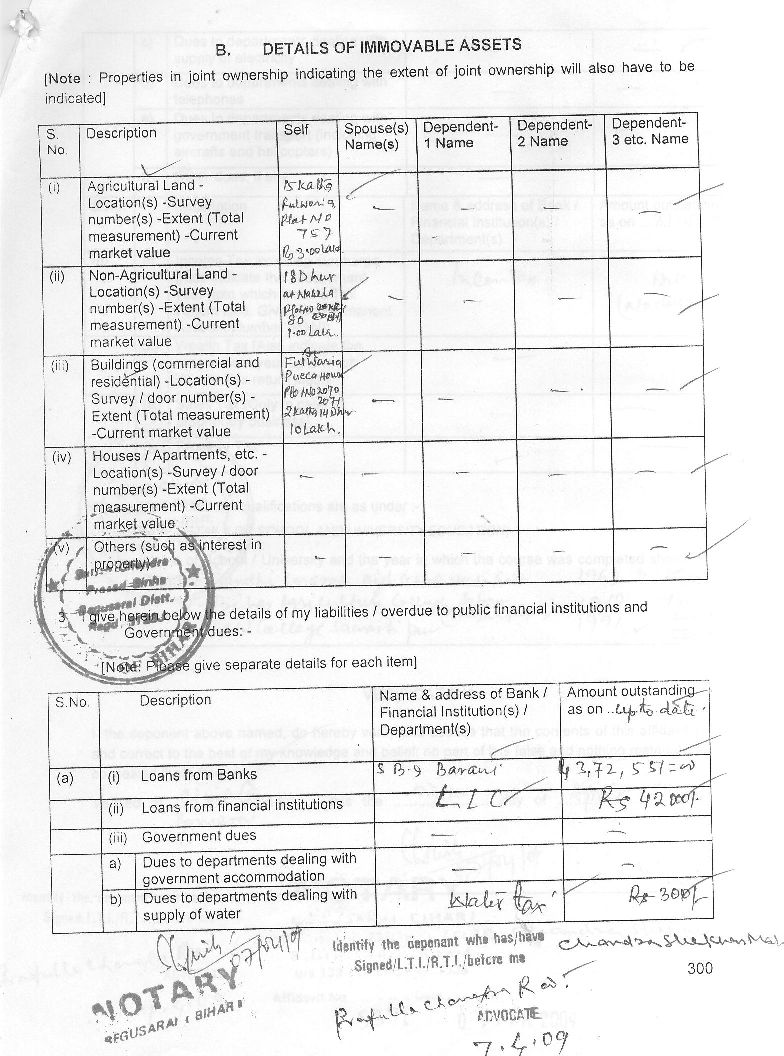 B. DETAILS OF IMMOVABLE ASSETS
[Note : Properties in joint ownership indicating the extent of joint ownership will also have to be
indicated]
S. No. Description Self Spouse(s) Name(s) Dependent-1 Name Dependent-2 Name Dependent-3 etc. Name
(i) Agricultural Land -
Location(s) -Survey
number(s) -Extent (Total
measurement) -Current
market value
Fulwaria
Plat NO
757
Rs 3.00 Lakh
— — — —
(ii) Non-Agricultural Land -
Location(s) -Survey
number(s) -Extent (Total
measurement) -Current
market value
18 Dhur
at
80
1.00 Lakh.
— — — —
(iii) Buildings (commercial and
residential) -Location(s) -
Survey / door number(s) -
Extent (Total measurement)
-Current market value
Fulwaria
Pucca House
2070
2071
2 Katha 14 Dhur
10 Lakh.
— — — —
(iv) Houses / Apartments, etc. -
Location(s) -Survey / door
number(s) -Extent (Total
measurement) -Current
market value
— — — — —
(v) Others (such as interest in
property)
— — — — —
Prasad Sinha
Begusarai Distt.
BIHAR
3. I give herein below the details of my liabilities / overdue to public financial institutions and
Government dues: -
[Note: Please give separate details for each item]
S.No. Description Name & address of Bank / Financial Institution(s) / Department(s) Amount outstanding as on ..up to date.
(a) (i) Loans from Banks S B I Barauni 3,72,551=00
(ii) Loans from financial institutions LIC Rs 42000/-
(iii) Government dues — —
a) Dues to departments dealing with
government accommodation — —
b) Dues to departments dealing with
supply of water Water tax Rs 300/-
07/04/09
NOTARY
BEGUSARAI (BIHAR)
Identify the deponent who has/have
Signed/L.T.I./R.T.I./before me
Chandra Shekhar
300
Prafulla Chandra
ADVOCATE
7.4.09